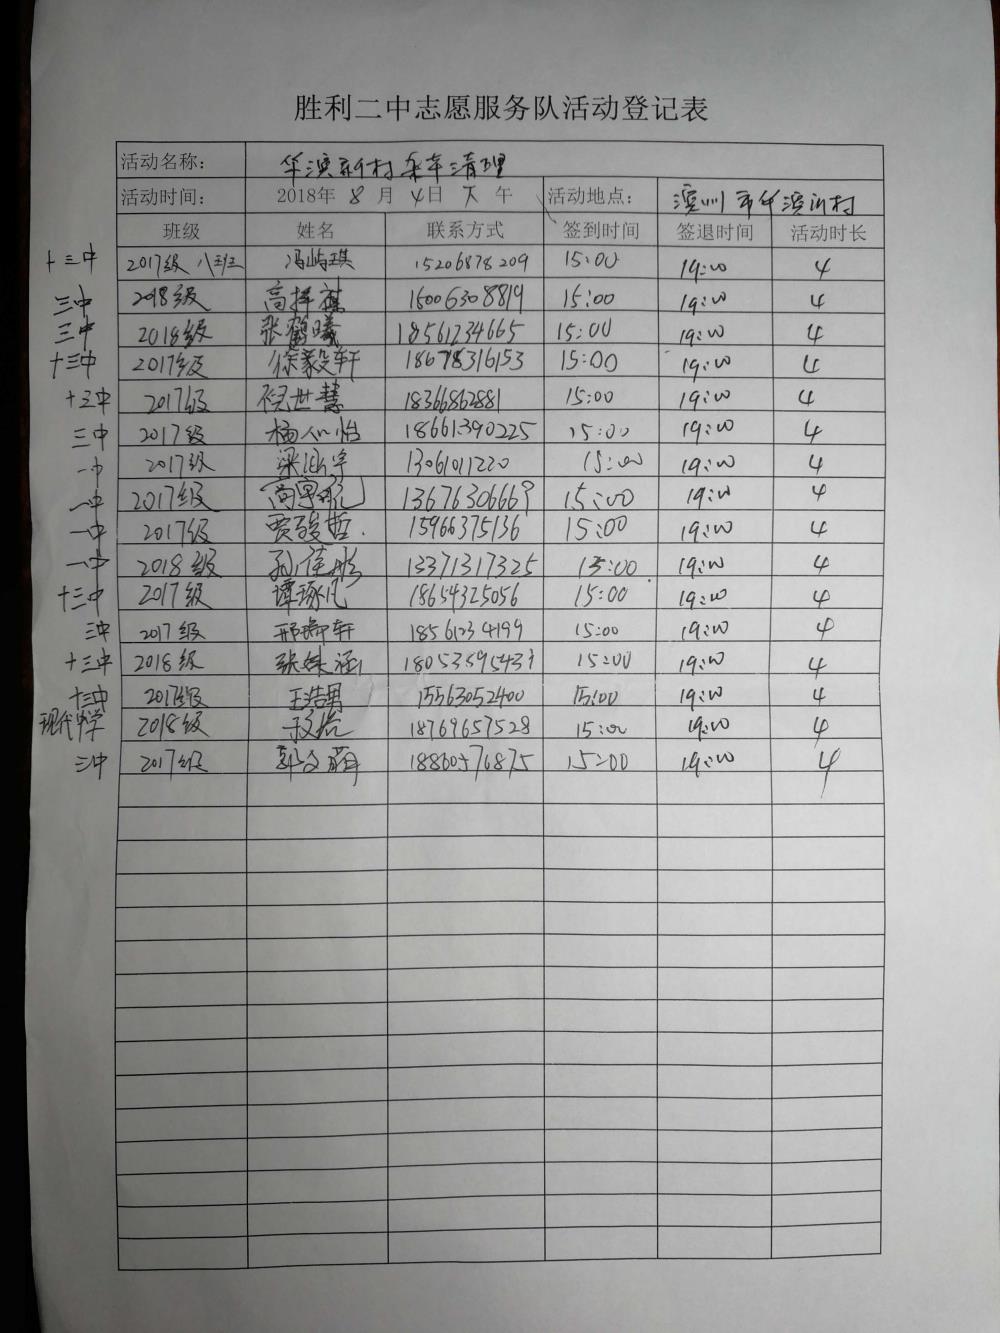 胜利二中志愿服务队活动登记表
活动名称： 华滨新村杂草清理
活动时间： 2018年 8 月 4日 下 午 活动地点： 滨州市华滨新村
班级 姓名 联系方式 签到时间 签退时间 活动时长
十三中 2017级 八班 冯屿琪 15206878209 15:00 19:00 4
三中 2018级 高择祺 15006308819 15:00 19:00 4
三中 2018级 张鹤曦 18561234665 15:00 19:00 4
十三中 2017级 徐毅轩 18678316153 15:00 19:00 4
十三中 2017级 倪世慧 18366862881 15:00 19:00 4
三中 2017级 杨心怡 18661390225 15:00 19:00 4
一中 2017级 梁 宇 13061011220 15:00 19:00 4
一中 2017级 13676306669 15:00 19:00 4
一中 2017级 贾骏哲 15966375136 15:00 19:00 4
一中 2018级 孙佳彤 13371317325 15:00 19:00 4
十三中 2017级 谭琢凡 18654325056 15:00 19:00 4
三中 2017级 邢瑞轩 18561234199 15:00 19:00 4
十三中 2018级 张姝涵 15:00 19:00 4
十三中 2017级 王浩男 15563052400 15:00 19:00 4
现代中学 2018级 18769657528 15:00 19:00 4
三中 2017级 郭文萌 18860576875 15:00 19:00 4